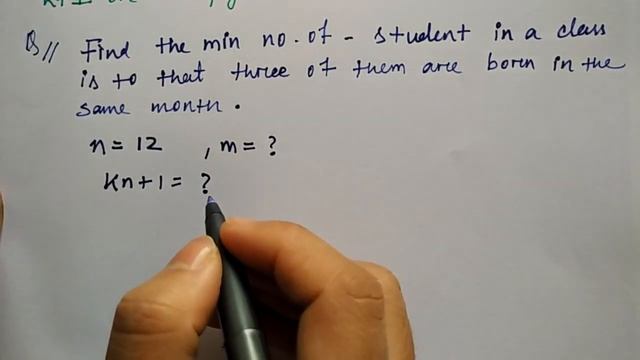 Q// Find the min no. of - student in a class
is to that three of them are born in the
same month.
n = 12 , m = ?
Kn+1 = ?